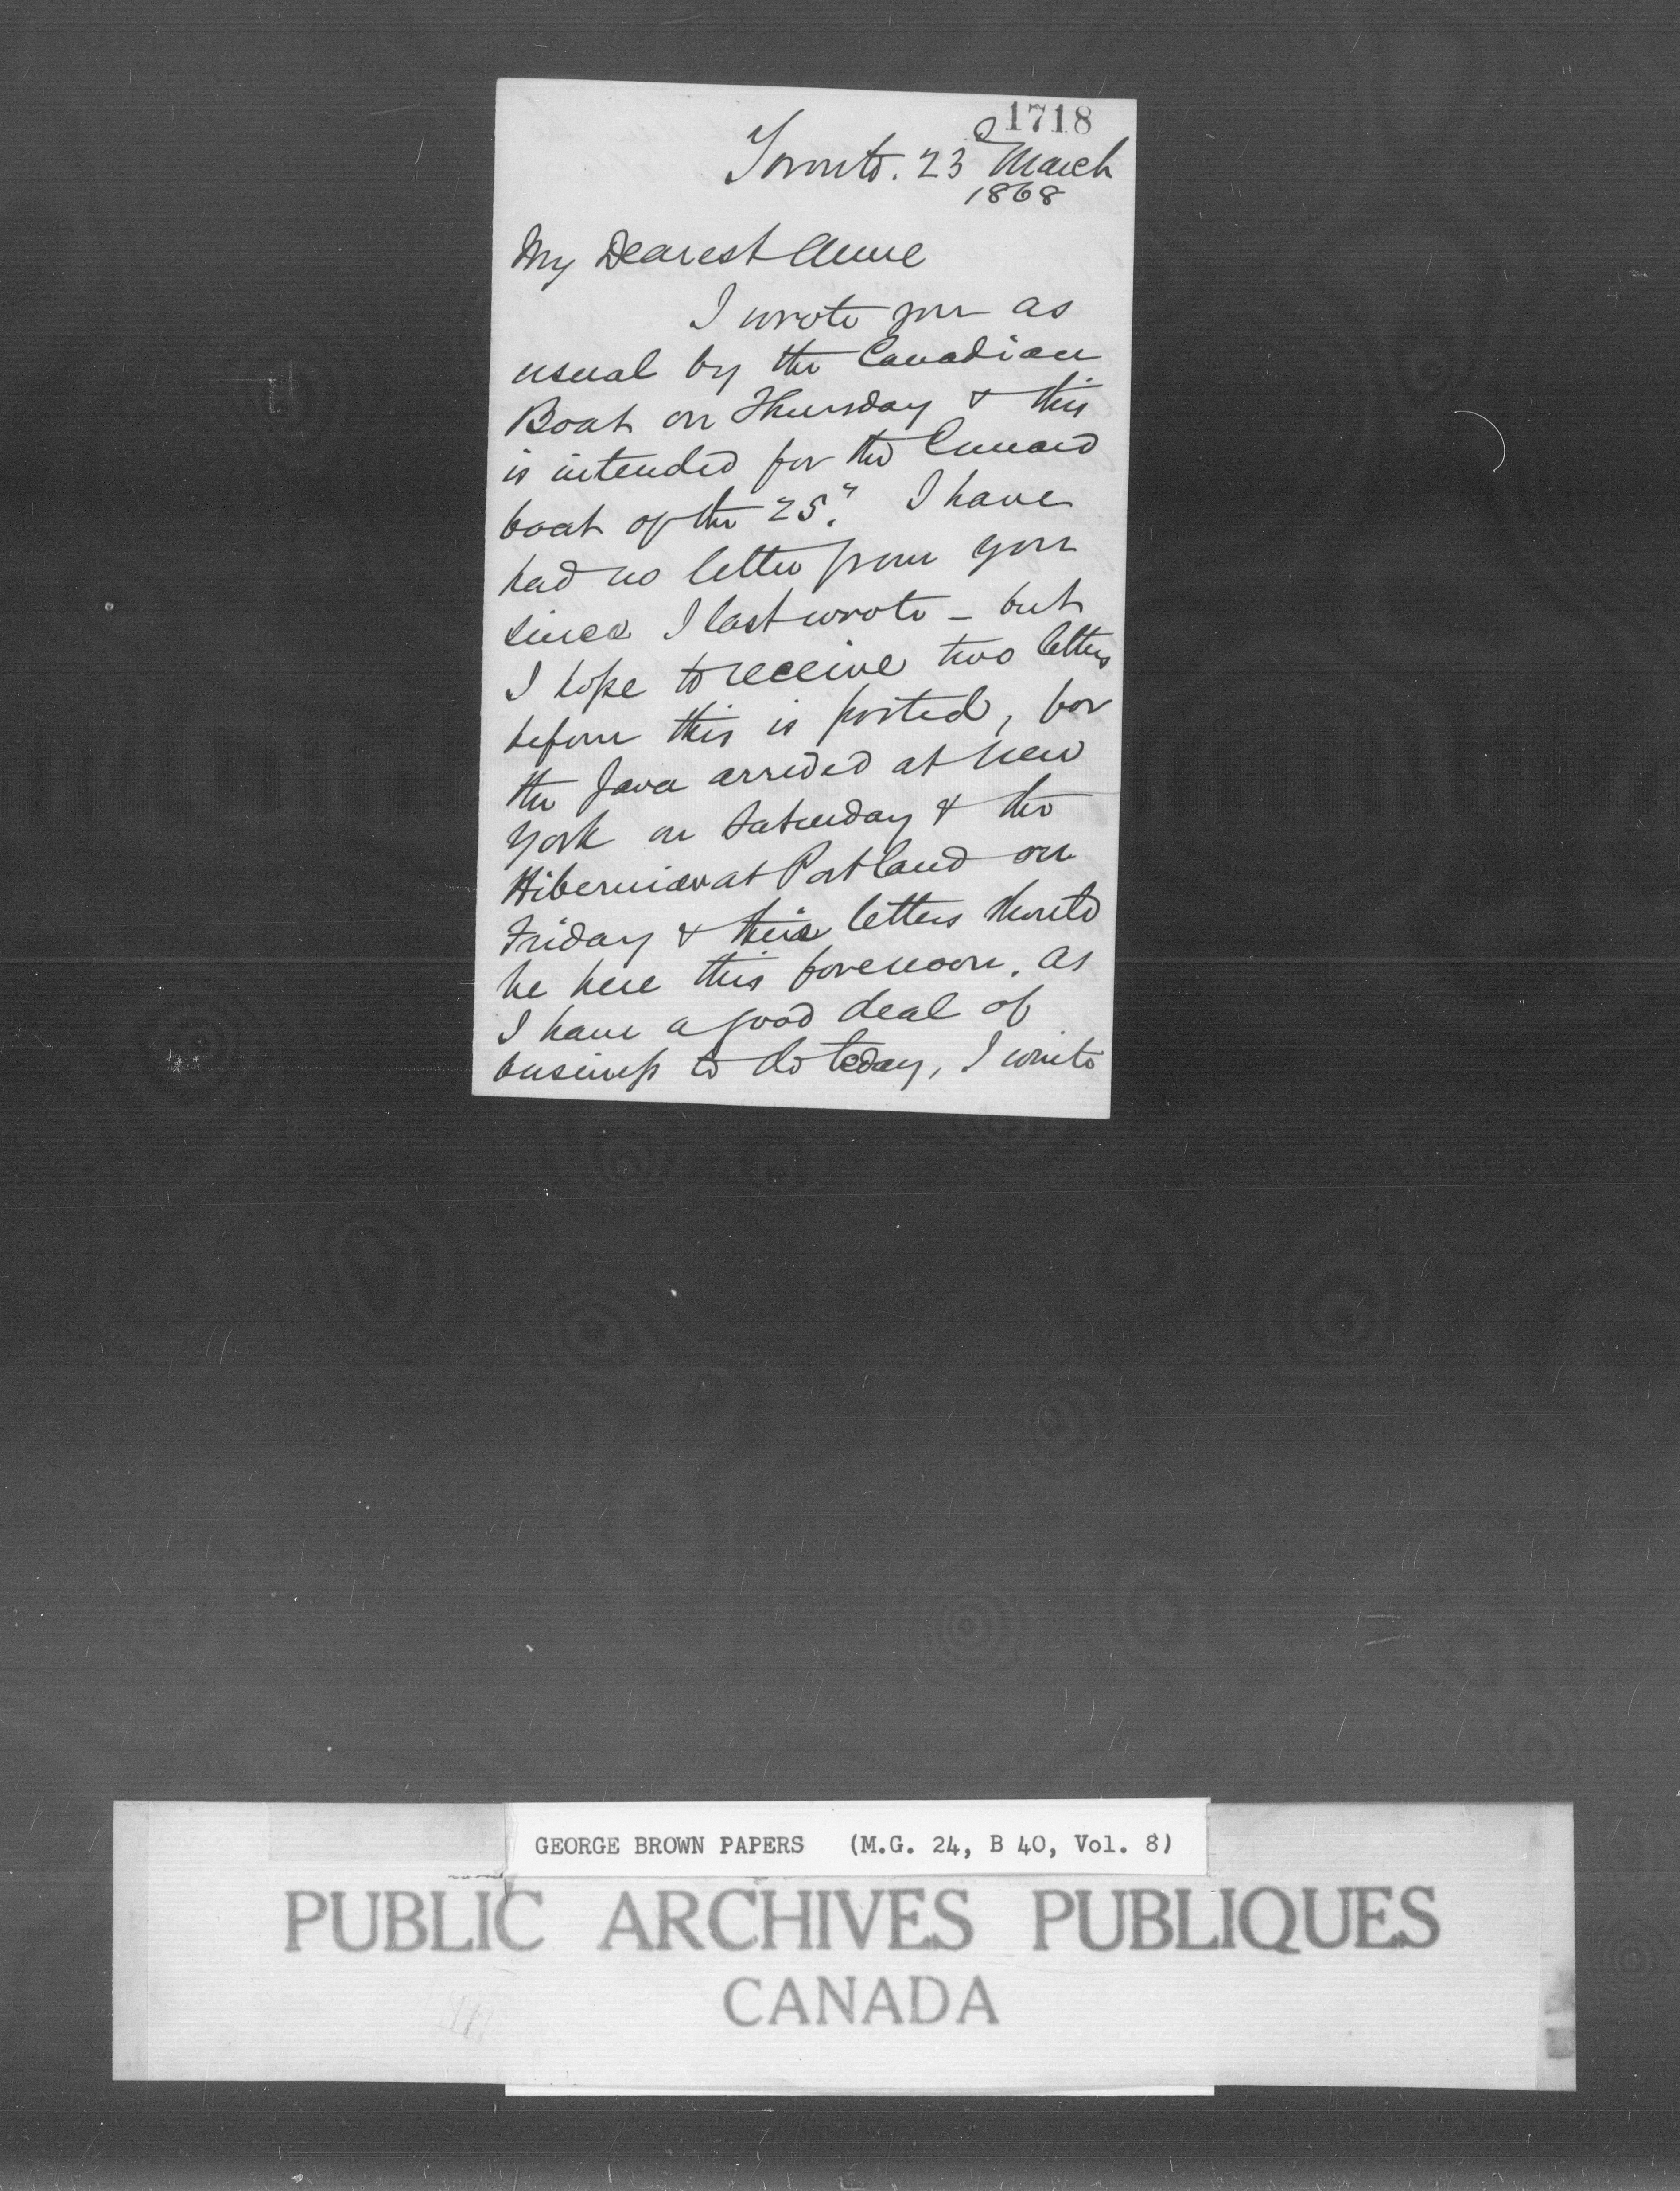 1718
Toronto. 23d March
1868
My Dearest Anne
I wrote you as
usual by the Canadian
Boat on Thursday & this
is intended for the Cunard
boat of the 25". I have
had no letter from you
since I last wrote - but
I hope to receive two letters
before this is posted, for
the Java arrived at New
York on Saturday & the
Hibernian at Portland on
Friday & their letters should
be here this forenoon. As
I have a good deal of
business to do today, I write
GEORGE BROWN PAPERS (M.G. 24, B 40, Vol. 8)
PUBLIC ARCHIVES PUBLIQUES
CANADA